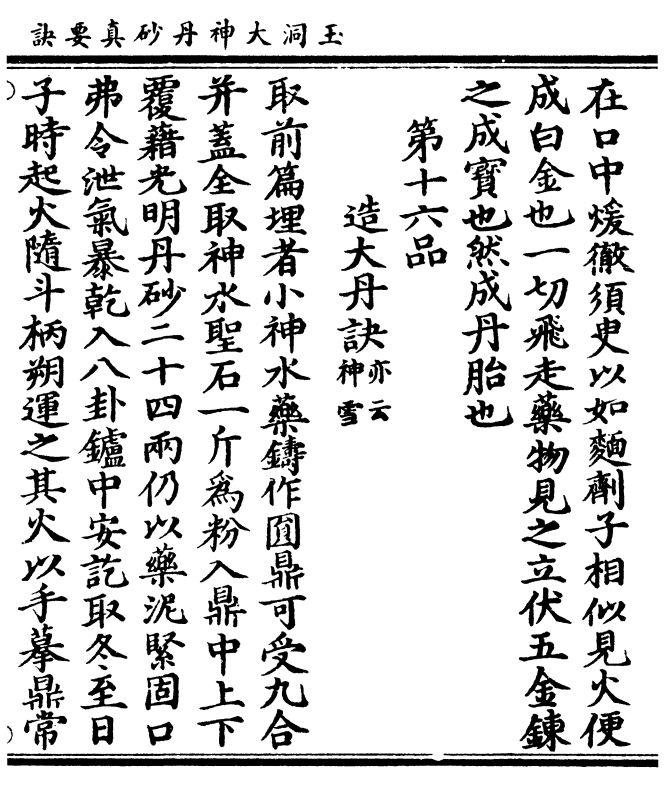 玉洞大神丹砂真要訣
在口中煖徹須史以如麵劑子相似見火便
成白金也一切飛走藥物見之立伏五金鍊
之成寶也然成丹胎也
第十六品
造大丹訣亦云神雪
取前篇埋者小神水藥鑄作圓鼎可受九合
并蓋全取神水聖石一斤為粉入鼎中上下
覆藉光明丹砂二十四兩仍以藥泥緊固口
弗令泄氣暴乾入八卦鑪中安訖取冬至日
子時起火隨斗柄朔運之其火以手摹鼎常